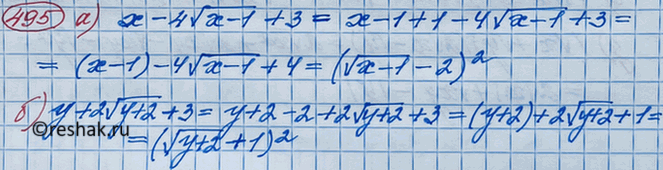 495 а) x - 4√x-1 + 3 = x - 1 + 1 - 4√x-1 + 3 =
= (x-1) - 4√x-1 + 4 = (√x-1 - 2)²
б) y + 2√y+2 + 3 = y + 2 - 2 + 2√y+2 + 3 = (y+2) + 2√y+2 + 1 =
©reshak.ru
= (√y+2 + 1)²